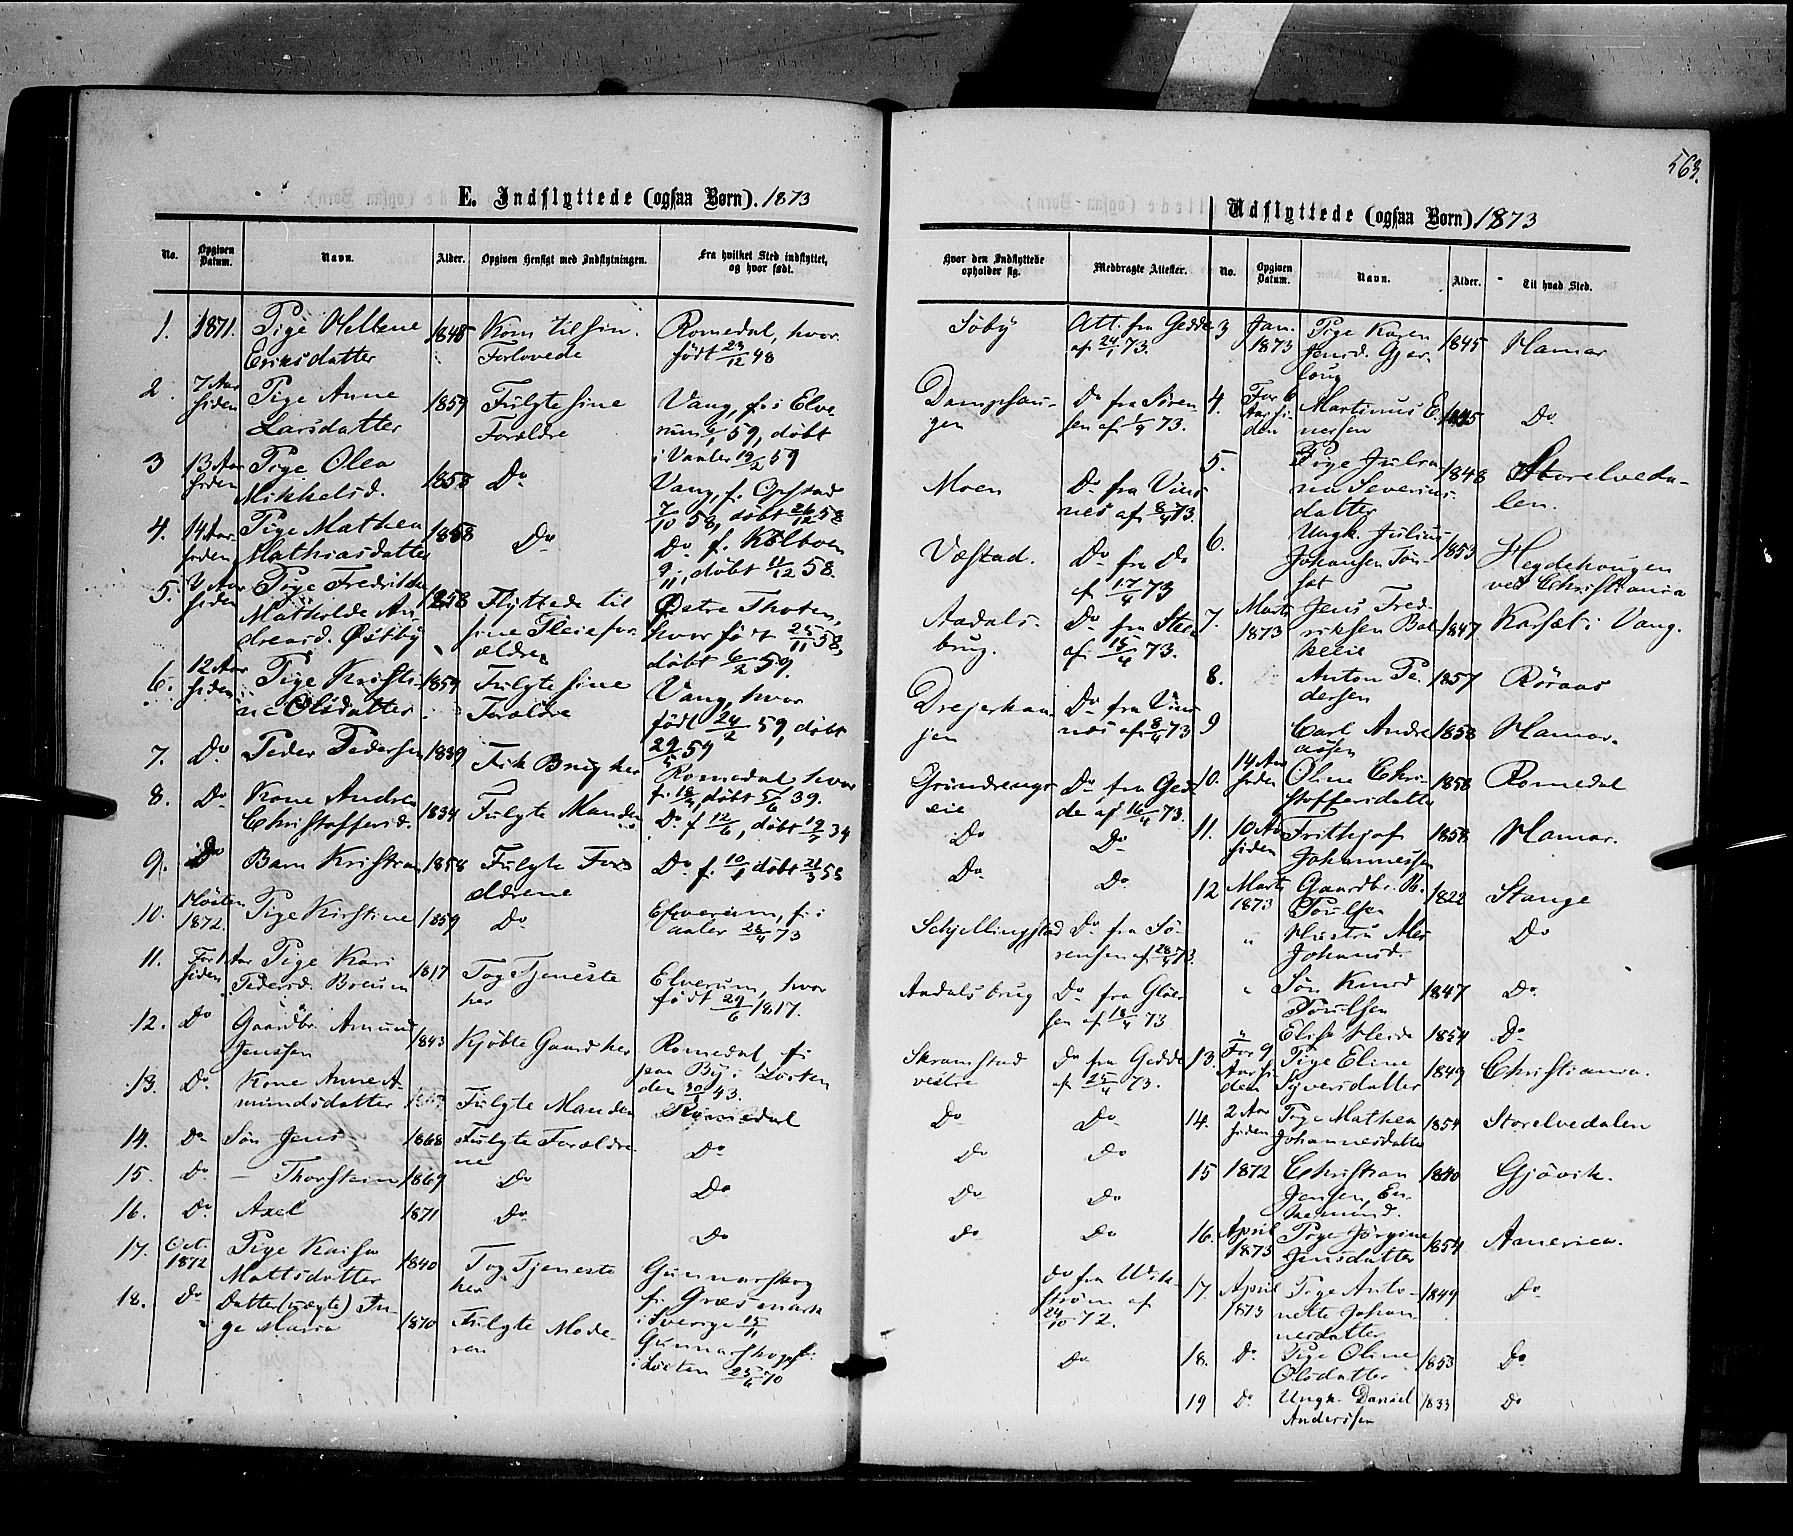 563.
E. Indflyttede (ogsaa Børn). 1873
No. Opgiven Datum. Navn. Alder. Opgiven Hensigt med Indflytningen. Fra hvilket Sted indflyttet, og hvor født.
1. 1871. Pige Hellene 1848 Kom til sin Romedal, hvor
Eriksdatter Forlovede født 23/12 48
2. 7 Aar siden Pige Anne 1859 Fulgte sine Vang, f. i Elve
Larsdatter Forældre rum 59, døbt
i Vaaler 19/2 59
3 13 Aar siden Pige Olea 1858 Do Vang, f. Opstad
Mikkelsd. 7/10 58, døbt 26/12 58
4. 14 Aar siden Pige Mathea 1858 Do Do f. Kolboen
Mathiasdatter 9/11, døbt 11/12 58.
5. Aar siden Pige Fredrikke 1858 Flyttede til Østre Thoten,
Mathilde An- sine Pleiefor- hvor født 25/11 58,
dreasd. Østby ældre døbt 6/2 59.
6. 12 Aar siden Pige Kristi- 1859 Fulgte sine Vang, hvor
ne Olsdatter Forældre født 24/2 59, døbt
29/ 59
7. Do Peder Pedersen 1839 Fik Brug her Romedal hvor
f. 18/, døbt 5/6 39.
8. Do Kone Andrea 1834 Fulgte Manden Do f 12/6, døbt 19/ 34
Christoffersd.
9. Do Barn Kristian 1858 Fulgte For Do f. 10/1 døbt 21/3 58
ældrene
10. Høsten 1872. Pige Kirstine 1859 Do Elverum, f. i
Vaaler 28/4 73
11. For Aar siden Pige Kari 1817 Tog Tjeneste Elverum, hvor
Pedersd. Breum her født 29/6 1817.
12. Do Gaardbr. Amund 1843 Kjøbte Gaard her Romedal, f.
Jenssen paa By i Løiten
13. Do Kone Anne A- den 30/ 43.
mundsdatter Fulgte Manden Romedal
14. Do Søn Jens 1868 Fulgte Forældre Do
ne
15. Do — Thorstein 1869 Do Do
16. Do Axel 1871 Do Do
17. Oct. 1872 Pige Kaisa 1840 Tog Tjeneste Gunnarskog
Mattsdatter her f. Græsmark
18. Do Datter (uægte) In- 1870 Fulgte Mode- i Sverige 15/11
ge Maria ren Gunnarskog f.
i Løiten 25/6 70
Hvor den Indflyttede opholder sig. Medbragte Attester.
Søby Att. fra Gedde
af 24/1 73.
Dampsau- Do fra Søren
gen sen af 1/9 73.
Moen Do fra Vins
nes af 8/4 73.
Væstad. Do fra Do
af 17/4 73
Aadals- Do fra Steen
brug. af 15/4 73.
Drejerhau Do fra Vins
jen nes af 8/4 73
Grundsengs- Do fra Ged
eie de af 16/4 73.
Do Do
Do Do
Schjellingstad Do fra Sø-
rensen af 28/4 73.
Aadalsbrug Do fra Gløer
sen af 18/4 73
Skramstad Do fra Gedde
vestre af 25/4 73.
Do Do
Do Do
Do Do
Do Do
Do fra Wik-
strøm af
24/10 72.
Do
Udflyttede (ogsaa Børn) 1873
No. Opgiven Datum. Navn. Alder. Til hvad Sted.
3 Jan. 1873 Pige Karen 1845 Hamar
Jensd. Gjer-
loug
4. For 6 Aar siden Martinus E- 1845 Do
nersen
5. Pige Julia 1848 Storelveda-
na Severins- len.
datter
6. Ungk. Julius 1853 Hegdehougen
Johansen Ton- ved Christiania
set
7. Marts 1873 Jens Fred- 1847 Karset i Vang.
riksen Bak-
keeie
8. Anton Pe 1857 Røraas
dersen
9 Carl Andre 1858 Hamar.
assen
10. 14 Aar siden Oline Chri- 1858 Romedal
stoffersdatter
11. 10 Aar siden Frithjof 1858 Hamar.
Johannessen
12 Marts 1873 Gaardbr. K. 1822 Stange
Poulsen
" Hustru Mar Do
Johansd.
" Søn Knud 1847 Do
Poulsen
" Elise 1854 Do
13. For 9 Aar siden Pige Eline 1849 Christiania.
Syversdatter
14. 2 Aar siden Pige Mathea 1854 Storelvedalen
Johannesdatter
15 1872 Christian 1840 Gjøvik.
Jensen, En
kemand.
16. April 1873 Pige Jørgine 1854 America.
Jensdatter
17. April 1873 Pige Anto- 1849 Do
nette Johan-
nesdatter
18. Do Pige Oline 1853 Do
Olsdatter
19 Do Ungk. Daniel 1833 Do
Anderssen